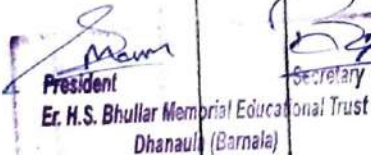 President Secretary
Er. H.S. Bhullar Memorial Educational Trust
Dhanaula (Barnala)